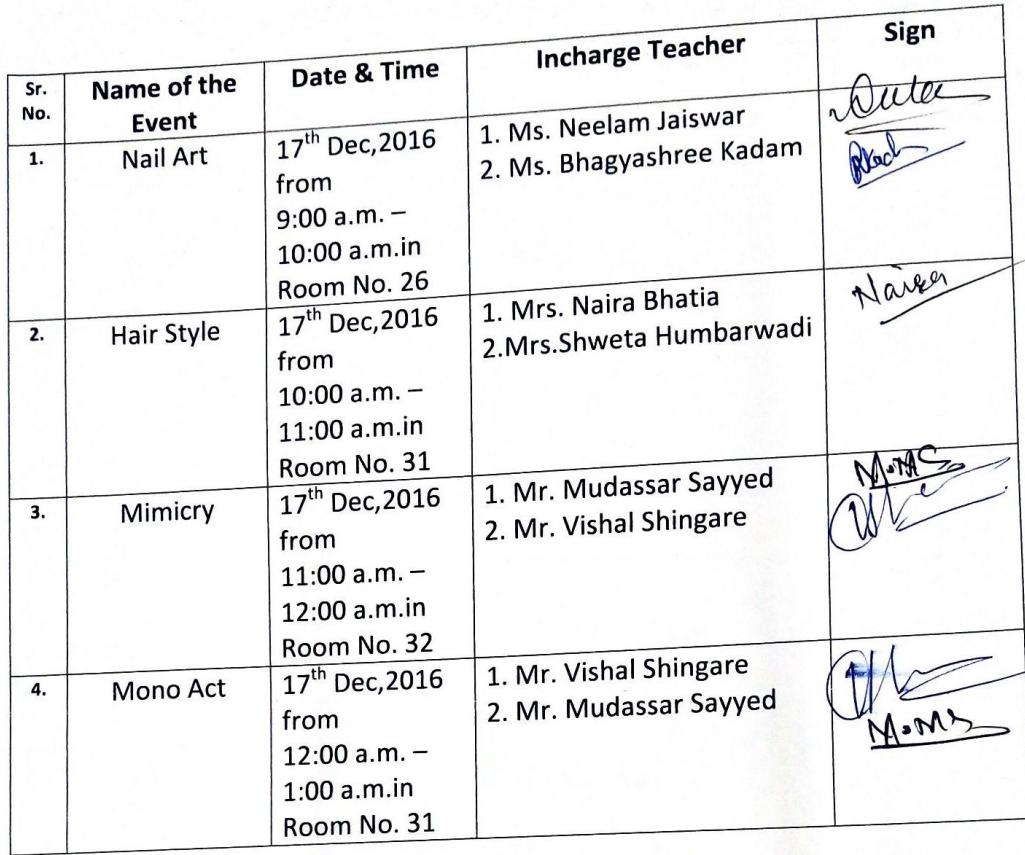 Sr. No. Name of the Event Date & Time Incharge Teacher Sign
1. Nail Art 17th Dec,2016 from 9:00 a.m. – 10:00 a.m.in Room No. 26
1. Ms. Neelam Jaiswar
2. Ms. Bhagyashree Kadam
2. Hair Style 17th Dec,2016 from 10:00 a.m. – 11:00 a.m.in Room No. 31
1. Mrs. Naira Bhatia
2.Mrs.Shweta Humbarwadi
Naira
3. Mimicry 17th Dec,2016 from 11:00 a.m. – 12:00 a.m.in Room No. 32
1. Mr. Mudassar Sayyed
2. Mr. Vishal Shingare
M.MS
4. Mono Act 17th Dec,2016 from 12:00 a.m. – 1:00 a.m.in Room No. 31
1. Mr. Vishal Shingare
2. Mr. Mudassar Sayyed
M.MS